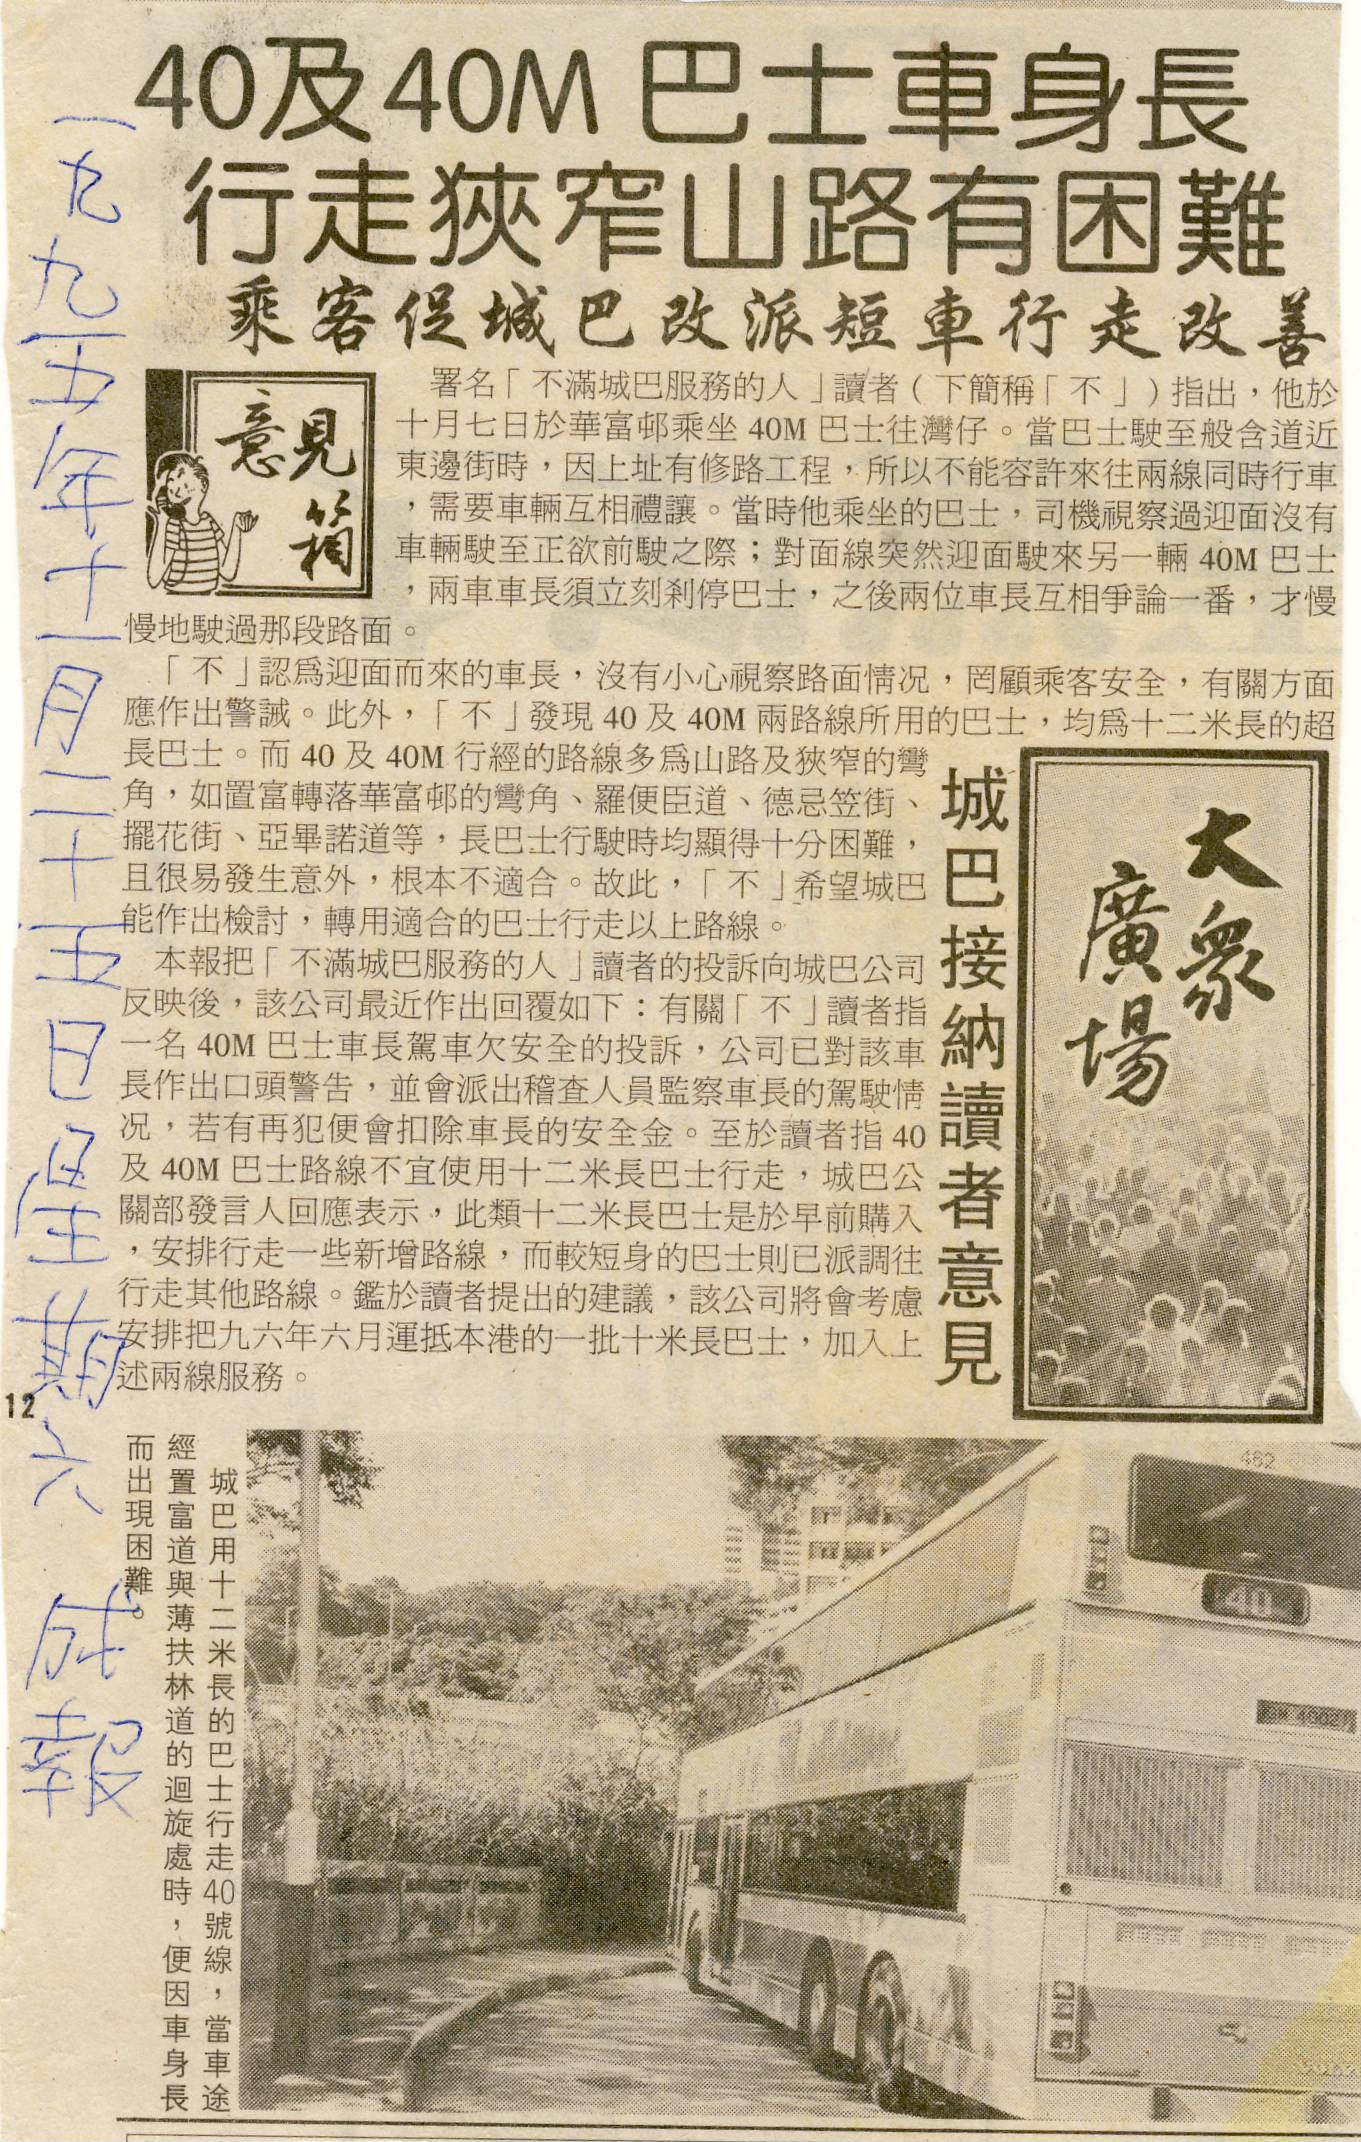 40及40M 巴士車身長
行走狹窄山路有困難
乘客促城巴改派短車行走改善
意見箱
署名「不滿城巴服務的人」讀者（下簡稱「不」）指出，他於
十月七日於華富邨乘坐 40M 巴士往灣仔。當巴士駛至般含道近
東邊街時，因上址有修路工程，所以不能容許來往兩線同時行車
，需要車輛互相禮讓。當時他乘坐的巴士，司機視察過迎面沒有
車輛駛至正欲前駛之際；對面線突然迎面駛來另一輛 40M 巴士
，兩車車長須立刻剎停巴士，之後兩位車長互相爭論一番，才慢
慢地駛過那段路面。
「不」認爲迎面而來的車長，沒有小心視察路面情況，罔顧乘客安全，有關方面
應作出警誡。此外，「不」發現 40 及 40M 兩路線所用的巴士，均爲十二米長的超
長巴士。而 40 及 40M 行經的路線多爲山路及狹窄的彎
角，如置富轉落華富邨的彎角、羅便臣道、德忌笠街、
擺花街、亞畢諾道等，長巴士行駛時均顯得十分困難，
且很易發生意外，根本不適合。故此，「不」希望城巴
能作出檢討，轉用適合的巴士行走以上路線。
本報把「不滿城巴服務的人」讀者的投訴向城巴公司
反映後，該公司最近作出回覆如下：有關「不」讀者指
一名 40M 巴士車長駕車欠安全的投訴，公司已對該車
長作出口頭警告，並會派出稽查人員監察車長的駕駛情
況，若有再犯便會扣除車長的安全金。至於讀者指 40
及 40M 巴士路線不宜使用十二米長巴士行走，城巴公
關部發言人回應表示，此類十二米長巴士是於早前購入
，安排行走一些新增路線，而較短身的巴士則已派調往
行走其他路線。鑑於讀者提出的建議，該公司將會考慮
安排把九六年六月運抵本港的一批十米長巴士，加入上
述兩線服務。
城巴接納讀者意見
大眾
廣場
12
城巴用十二米長的巴士行走40號線，當車途
經置富道與薄扶林道的迴旋處時，便因車身長
而出現困難。
462
40
一九九五年十一月二十五日星期六 成報